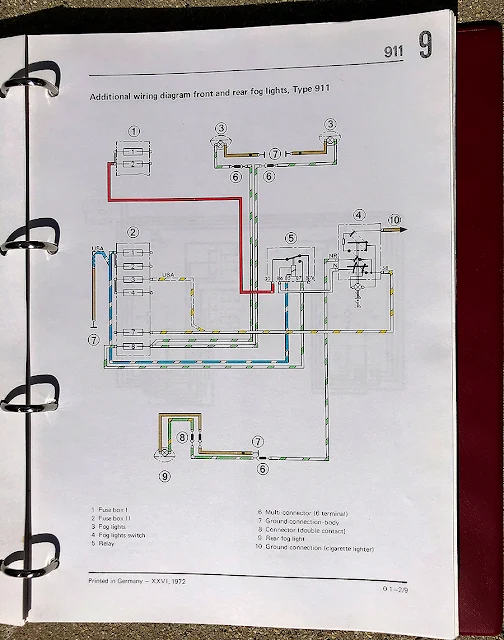 911 9
Additional wiring diagram front and rear fog lights, Type 911
1
3
3
1
2
7
6
6
2
4
10
5
USA
1
2
3
USA
4
NR
30
86
85
87
56
7
7
8
8
7
6
9
1 Fuse box I
2 Fuse box II
3 Fog lights
4 Fog lights switch
5 Relay
6 Multi connector (6 terminal)
7 Ground connection-body
8 Connector (double contact)
9 Rear fog light
10 Ground connection (cigarette lighter)
Printed in Germany – XXVI, 1972
0.1–2/9